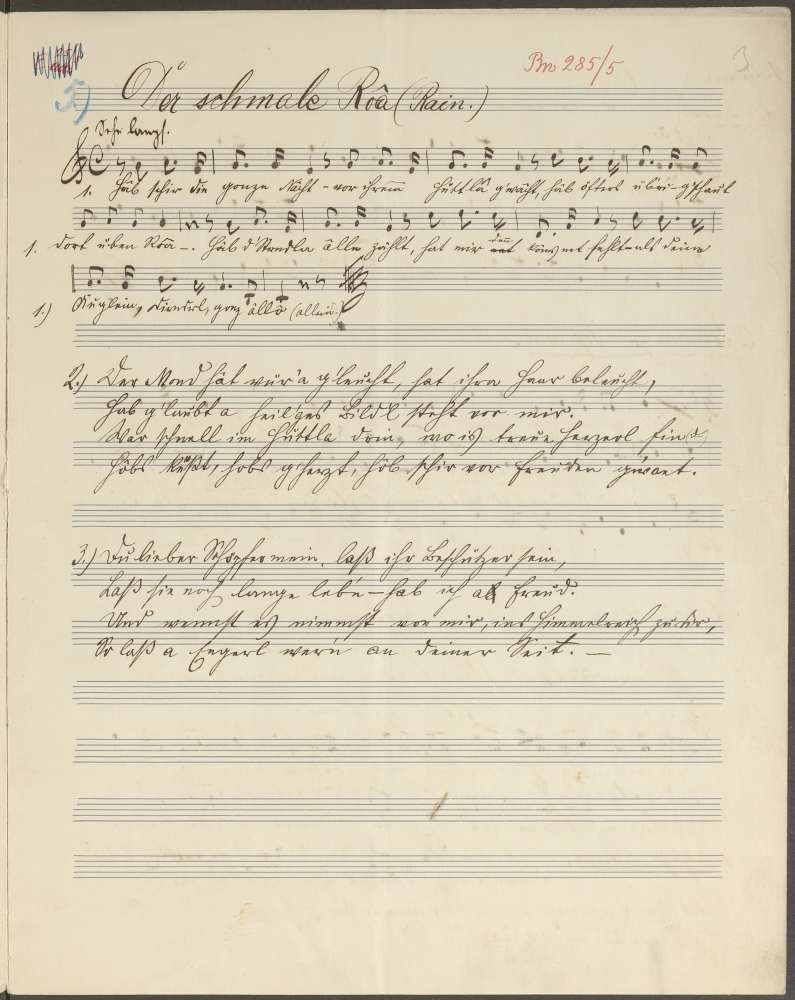 Bn 285/5
3
5)
Der schmale Rôa (Rain.)
Sehr langs.
1. Hab schir die gonze Nacht - vor ihrem Hüttla g'wacht, hab öfters überi-g'schaut
1. Dort üben Rôa -. Hab d'Sterndla älle zöhlt, hat mir koans net fehlt - als deine
1.) Äuglein, Dirnderl, gonz allô (allein)
2.) Der Mond hat vüra g'leucht, hat ihra Haar beleucht,
Hab g'laubt a heil'ges Bild'l steht vor mir.
War schnell im Hüttla drin, wo is treue Herzerl find,
Hôbs küßt, hobs g'herzt, hôb schir vor Freuden g'woant.
3.) Du lieber Schöpfer mein, laß ihr Beschützer sein,
Laß sie noch lange leb'n - hab ich a Freud.
Und wennst es nimmst von mir, ins Himmelreich zu dir,
So laß a Engerl wer'n an deiner Seit. —